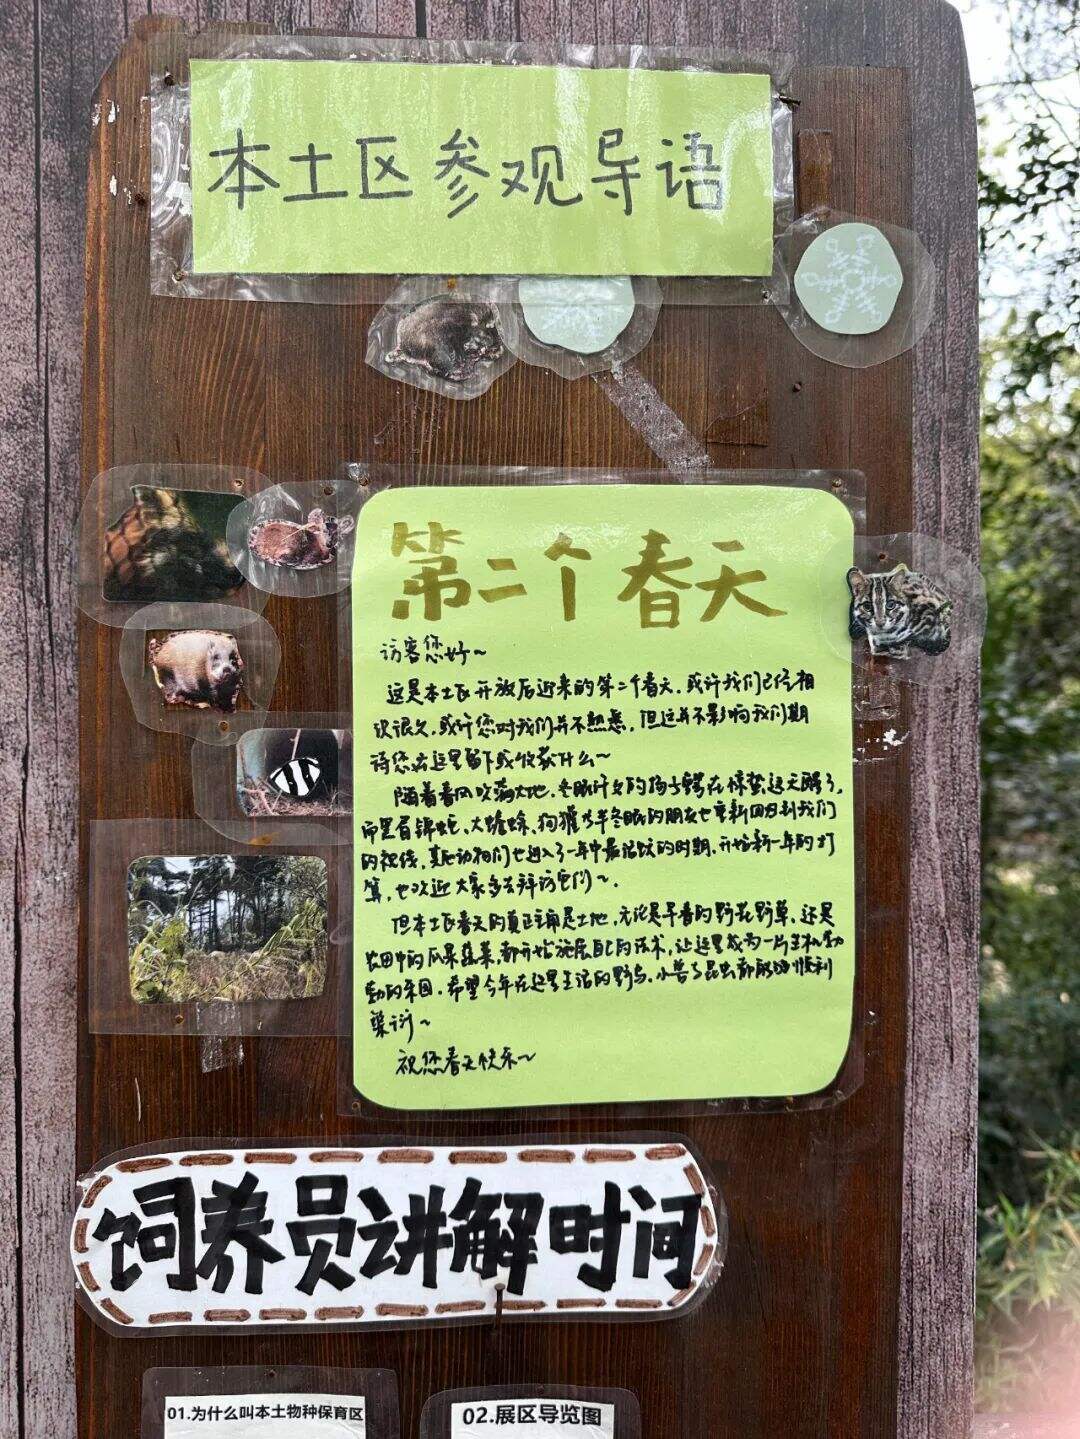 本土区参观导语
第二个春天
访客您好~
这是本土区开放后迎来的第二个春天，或许我们已经相
识很久，或许您对我们并不熟悉，但这并不影响我们期
待您在这里留下或收获什么~
随着春风吹满大地，冬眠许久的狗子獾在惊蛰这天醒了，
而黑眉锦蛇、大蟾蜍、狗獾等半冬眠的朋友也重新回归到我们
的视线，其他动物们也进入了一年中最活跃的时期，开始新一年的打
算，也欢迎大家多去拜访它们~。
但本土区春天的真正主角是土地，无论是早春的野花野草，还是
农田中的瓜果蔬菜，都开始施展自己的法术，让这里成为一片生机勃
勃的乐园。希望今年在这里生活的野鸟、小兽与昆虫都能够顺利
繁衍~
祝您春天快乐~
饲养员讲解时间
01.为什么叫本土物种保育区
02.展区导览图